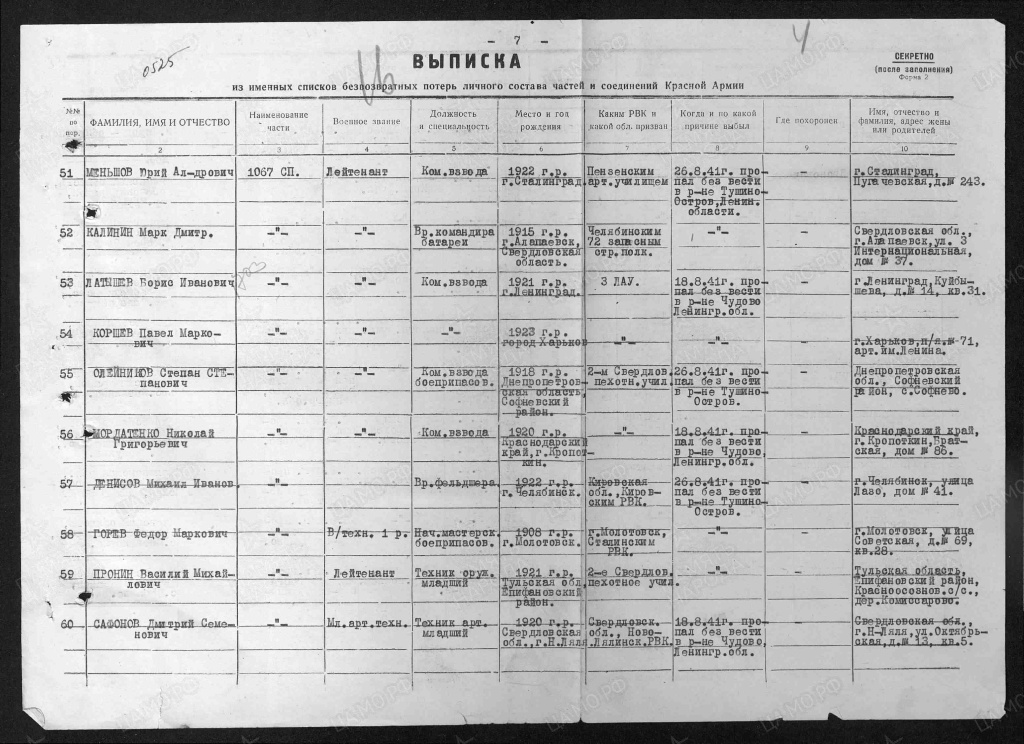 - 7 -
4
0525
ВЫПИСКА
СЕКРЕТНО
(после заполнения)
Форма 2
из именных списков безвозвратных потерь личного состава частей и соединений Красной Армии
№№ по пор.
ФАМИЛИЯ, ИМЯ И ОТЧЕСТВО
Наименование части
Военное звание
Должность и специальность
Место и год рождения
Каким РВК и какой обл. призван
Когда и по какой причине выбыл
Где похоронен
Имя, отчество и фамилия, адрес жены или родителей
2 3 4 5 6 7 8 9 10
51 МЕНЬШОВ Юрий Ал-дрович 1067 СП. Лейтенант Ком.взвода 1922 г.р. Пензенским 26.8.41г. про- - г.Сталинград,
г.Сталинград. арт.училищем пал без вести Пугачевская,д.№ 243.
в р-не Тушино-
Остров,Ленин.
области.
52 КАЛИНИН Марк Дмитр. -"- -"- Вр.командира 1915 г.р. Челябинским -"- - Свердловская обл.,
батареи г.Алапаевск, 72 запасным г.Алапаевск,ул. 3
Свердловская стр.полк. Интернациональная,
область. дом № 37.
53 ЛАТЫШЕВ Борис Иванович -"- -"- Ком.взвода 1921 г.р. 3 ЛАУ. 18.8.41г. про- - г.Ленинград,Куйбы-
г.Ленинград. пал без вести шева, д.№ 14, кв.31.
в р-не Чудово
Ленингр.обл.
54 КОРШЕВ Павел Марко- -"- -"- -"- 1923 г.р. -"- -"- - г.Харьков,п/я.№-71,
вич город Харьков арт.им.Ленина.
55 ОЛЕЙНИКОВ Степан СТЕ- -"- -"- Ком.взвода 1918 г.р. 2-м Свердлов. 26.8.41г. про- - Днепропетровская
панович боеприпасов. Днепропетров- пехотн.учил. пал без вести обл., Софневский
ская область, в р-не Тушино- район, с.Софнево.
Софневский Остров.
район.
56 МОРДАТЕНКО Николай -"- -"- Ком.взвода 1920 г.р. -"- 18.8.41г. про- - Краснодарский край,
Григорьевич Краснодарский пал без вести г.Кропоткин,Брат-
край,г.Кропот- в р-не Чудово, ская, дом № 86.
кин. Ленингр.обл.
57 ДЕНИСОВ Михаил Иванов. -"- Вр.фельдшера. 1922 г.р. Кировская 26.8.41г. про- - г.Челябинск, улица
г.Челябинск. обл.,Киров- пал без вести Лазо, дом № 41.
ским РВК. в р-не Тушино-
Остров.
58 ГОРЕВ Федор Маркович -"- В/техн. 1 р. Нач.мастерск. 1908 г.р. г.Молотовск, -"- - г.Молотовск, улица
боеприпасов. г.Молотовск. Сталинским Советская, д.№ 69,
РВК. кв.28.
59 ПРОНИН Василий Михай- -"- Лейтенант Техник оруж. 1921 г.р. 2-е Свердлов. -"- - Тульская область,
лович младший Тульская обл. пехотное учил. Епифановский район,
Епифановский Красноосознов.с/с.,
район. дер.Комиссарово.
60 САФОНОВ Дмитрий Семе- -"- Мл.арт.техн. Техник арт. 1920 г.р. Свердловск. 18.8.41г. про- - Свердловская обл.,
нович младший Свердловская обл., Ново- пал без вести г.Н-Ляля,ул.Октябрь-
обл.,г.Н Ляля Лялинск.РВК. в р-не Чудово, ская,д.№ 13, кв.5.
Ленингр.обл.
ЦАМО.РФ